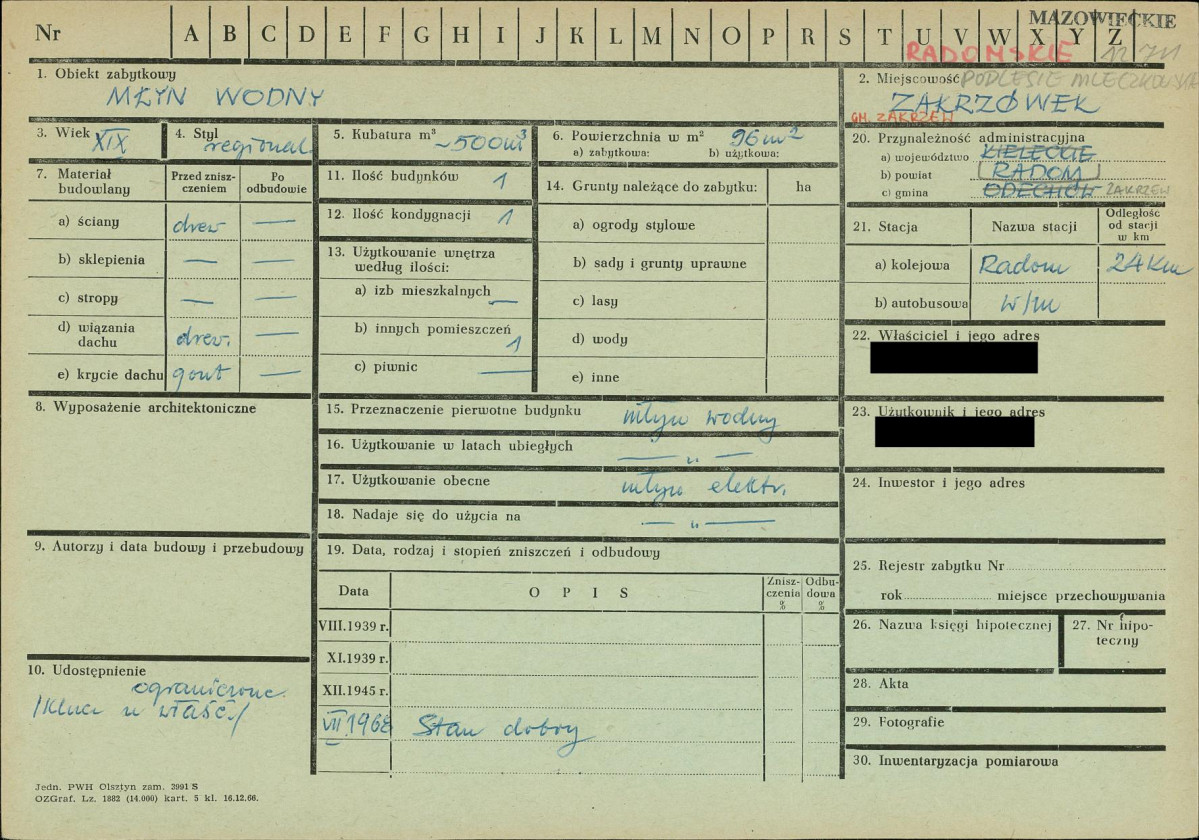 MAZOWIECKIE
Nr A B C D E F G H I J K L M N O P R S T U V W X Y Z
RADOMSKIE
1. Obiekt zabytkowy
MŁYN WODNY
2. Miejscowość PODLESIE MLECZKOWSKIE
ZAKRZÓWEK
GM. ZAKRZEW
3. Wiek XIX
4. Styl regional.
5. Kubatura m³ ~500m³
6. Powierzchnia w m² 96m²
a) zabytkowa: b) użytkowa:
7. Materiał budowlany
Przed zniszczeniem
Po odbudowie
a) ściany drew —
b) sklepienia — —
c) stropy — —
d) wiązania dachu drew. —
e) krycie dachu gont —
8. Wyposażenie architektoniczne
9. Autorzy i data budowy i przebudowy
10. Udostępnienie
ograniczone
/Klucz u właśc./
11. Ilość budynków 1
12. Ilość kondygnacji 1
13. Użytkowanie wnętrza według ilości:
a) izb mieszkalnych —
b) innych pomieszczeń 1
c) piwnic —
14. Grunty należące do zabytku: ha
a) ogrody stylowe
b) sady i grunty uprawne
c) lasy
d) wody
e) inne
15. Przeznaczenie pierwotne budynku młyn wodny
16. Użytkowanie w latach ubiegłych — „ —
17. Użytkowanie obecne młyn elektr.
18. Nadaje się do użycia na — „ —
19. Data, rodzaj i stopień zniszczeń i odbudowy
Data OPIS Zniszczenia % Odbudowa %
VIII.1939 r.
XI.1939 r.
XII.1945 r.
VII.1968 Stan dobry
20. Przynależność administracyjna
a) województwo KIELECKIE
b) powiat RADOM
c) gmina ODECHÓW ZAKRZEW
21. Stacja Nazwa stacji Odległość od stacji w km
a) kolejowa Radom 24 km
b) autobusowa w/m
22. Właściciel i jego adres
23. Użytkownik i jego adres
24. Inwestor i jego adres
25. Rejestr zabytku Nr
rok miejsce przechowywania
26. Nazwa księgi hipotecznej
27. Nr hipoteczny
28. Akta
29. Fotografie
30. Inwentaryzacja pomiarowa
Jedn. PWH Olsztyn zam. 3991 S
OZGraf. Lz. 1882 (14.000) kart. 5 kl. 16.12.66.